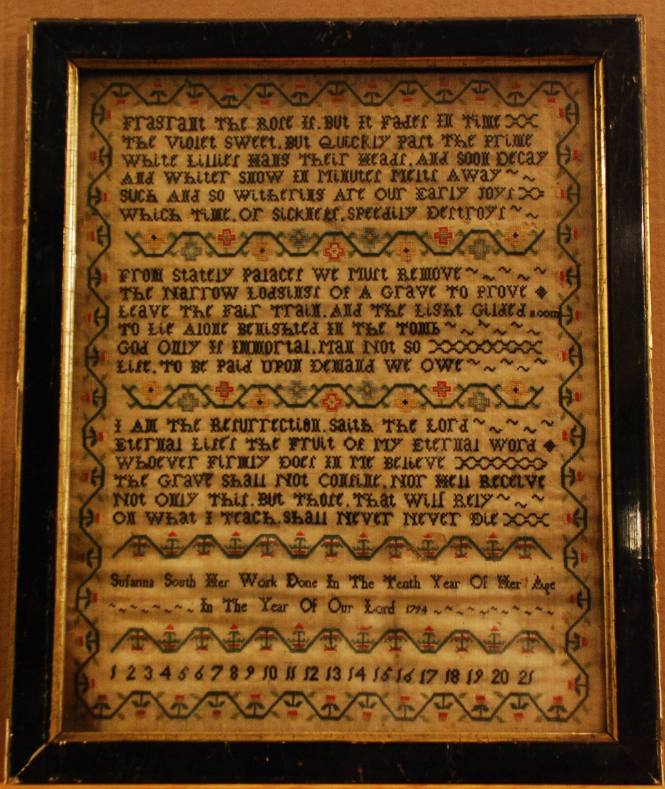 Fragrant The Rose Is. But It Fades In Time
The Violet Sweet. But Quickly Past The Prime
White Lillies Hang Their Heads, And Soon Decay
And Whiter Snow In Minutes Melts Away
Such And So Withering Are Our Early Joys
Which Time, Or Sickness, Speedily Destroys
From Stately Palaces We Must Remove
The Narrow Lodgings Of A Grave To Prove
Leave The Fair Train, And The Light Gilded Room
To Lie Alone Benighted In The Tomb
God Only Is Immortal, Man Not So
Life, To Be Paid Upon Demand We Owe
I Am The Resurrection, Saith The Lord
Eternal Lifes The Fruit Of My Eternal Word
Whoever Firmly Does In Me Believe
The Grave Shall Not Confine, Nor Hell Receive
Not Only This, But Those, That Will Rely
On What I Teach, Shall Never Never Die
Susanna South Her Work Done In The Tenth Year Of Her Age
In The Year Of Our Lord 1794
1 2 3 4 5 6 7 8 9 10 11 12 13 14 15 16 17 18 19 20 21